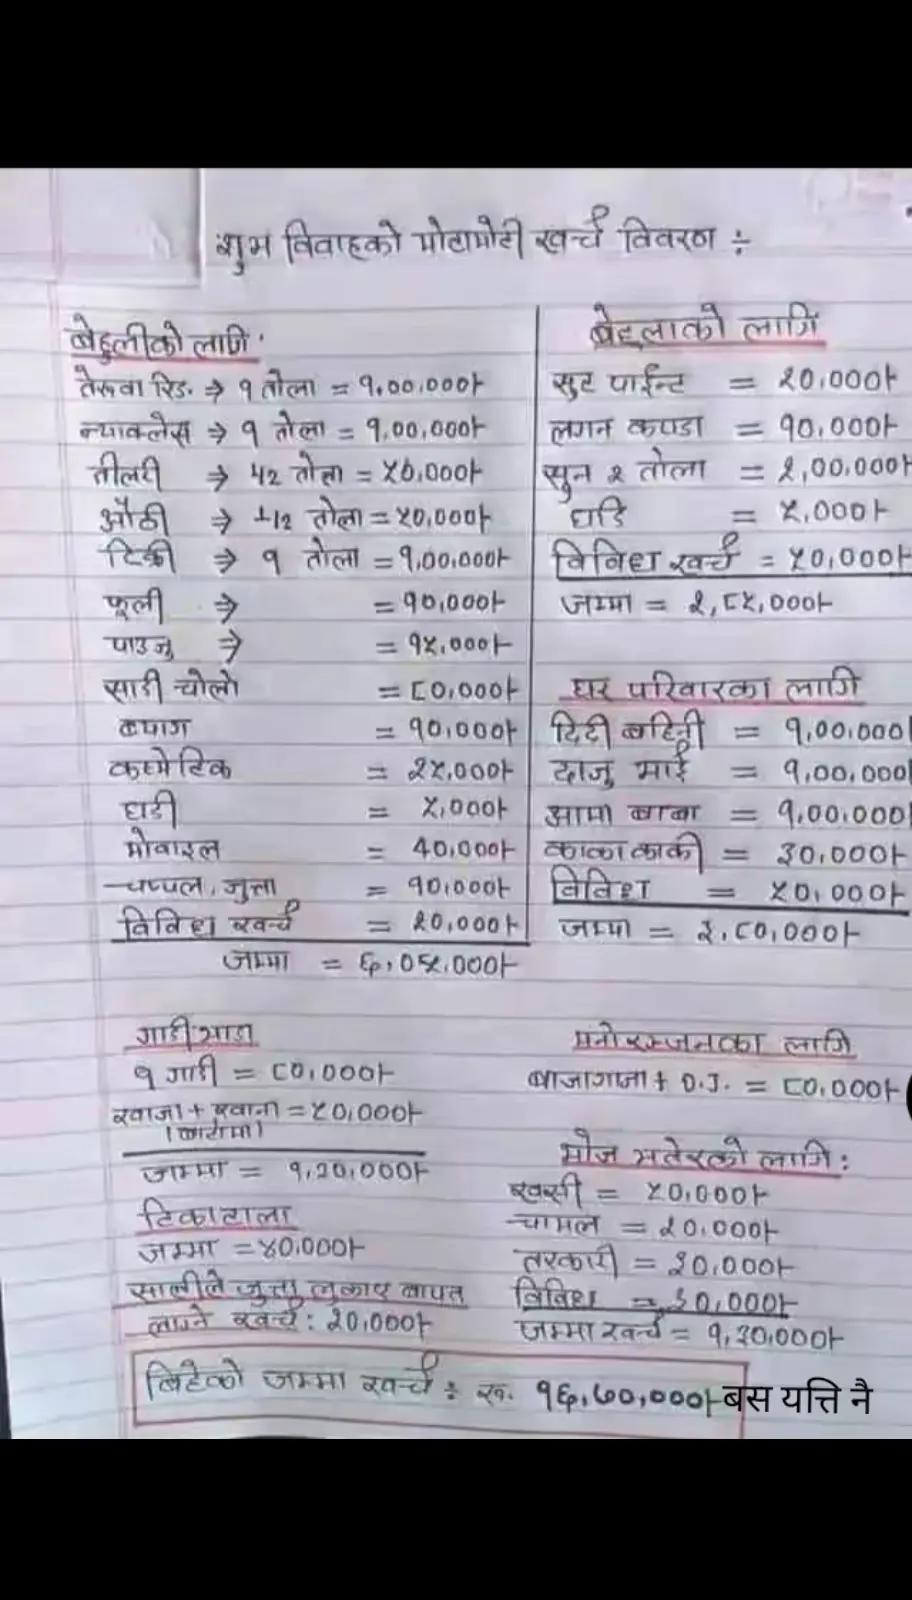 शुभ विवाहको मोटामोटी खर्च विवरण ÷
बेहुलीको लागि:
तेरुवा रिङ. ⇒ १ तोला = १,००,०००/-
न्याक्लेस ⇒ १ तोला = १,००,०००/-
तीलरी ⇒ 1/2 तोला = ५०,०००/-
औठी ⇒ 1/2 तोला = ५०,०००/-
टिकी ⇒ १ तोला = १,००,०००/-
फूली ⇒ = १०,०००/-
पाउजु ⇒ = १५,०००/-
साडी चोलो = ८०,०००/-
= १०,०००/-
कस्मेटिक = २५,०००/-
घडी = ५,०००/-
मोवाइल = ४०,०००/-
चप्पल, जुत्ता = १०,०००/-
विविध खर्च = २०,०००/-
जम्मा = ६,०५,०००/-
बेहुलाको लागि
सुट पाईन्ट = २०,०००/-
लगन कपडा = १०,०००/-
सुन २ तोला = २,००,०००/-
घडि = ५,०००/-
विविध खर्च = ५०,०००/-
जम्मा = २,८५,०००/-
घर परिवारका लागि
दिदी बहिनी = १,००,०००
दाजु भाई = १,००,०००
आमा बाबा = १,००,०००
काका काकी = ३०,०००/-
विविध = ५०,०००/-
जम्मा = ३,८०,०००/-
गाडी भाडा
१ गाडी = ८०,०००/-
खाजा + खाना = ५०,०००/-
(बाटोमा)
जम्मा = १,३०,०००/-
टिकाटाला
जम्मा = ४०,०००/-
सालीले जुत्ता लुकाए बापत
लाग्ने खर्च: २०,०००/-
मनोरम्जनका लागि
बाजागाजा + D.J. = ८०,०००/-
भोज भतेरको लागि:
खसी = ५०,०००/-
चामल = २०,०००/-
तरकारी = ३०,०००/-
विविध = ३०,०००/-
जम्मा खर्च = १,३०,०००/-
बिहेको जम्मा खर्च ÷ रु. १६,७०,०००/- बस यत्ति नै